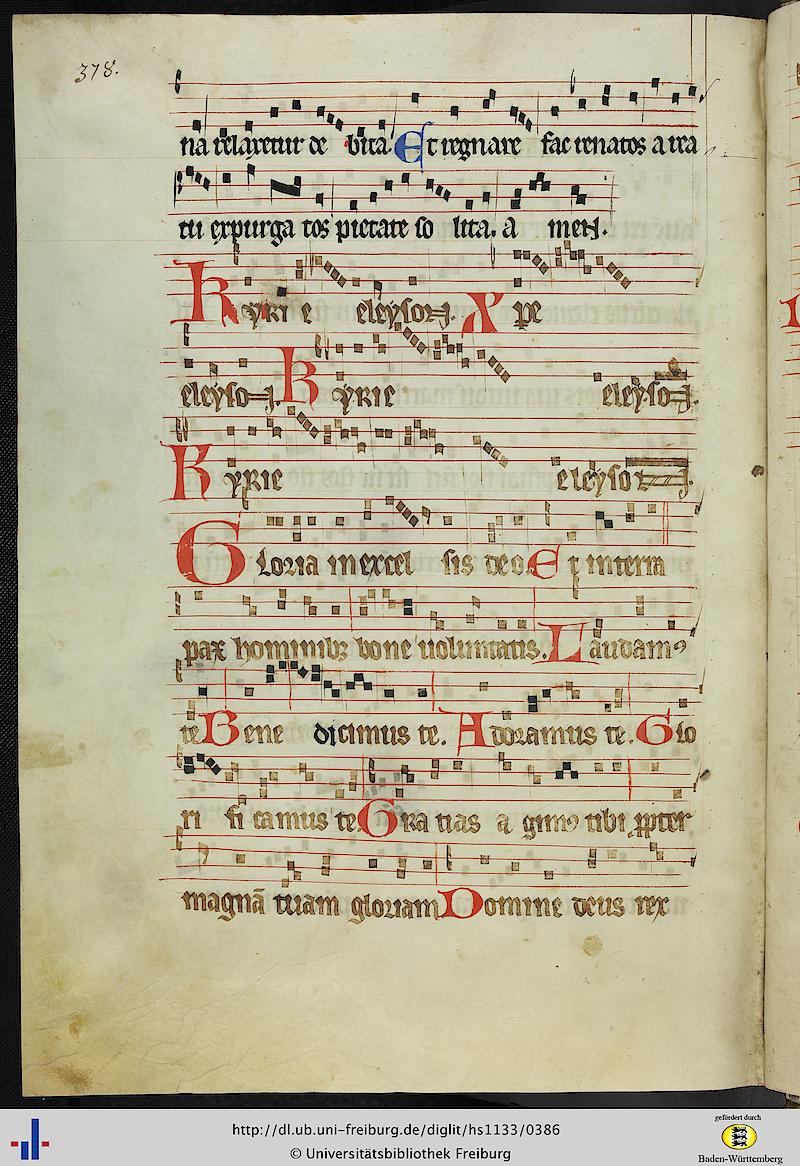 378.
na relaxetur de bita. Et regnare fac renatos a rea
tu expurga tos pietate so lita. a men.
Kyrie eleyson. Xpe
eleyson. Kyrie eleyson.
Kyrie eleyson.
Gloria in excel sis deo. Et in terra
pax hominibꝫ bone uoluntatis. Laudamꝰ
te Bene dicimus te. Adoramus te. Glo
ri fi camus te. Gra tias a gimꝰ tibi ꝓpter
magnā tuam gloriam Domine deus rex
http://dl.ub.uni-freiburg.de/diglit/hs1133/0386
© Universitätsbibliothek Freiburg
gefördert durch
Baden-Württemberg